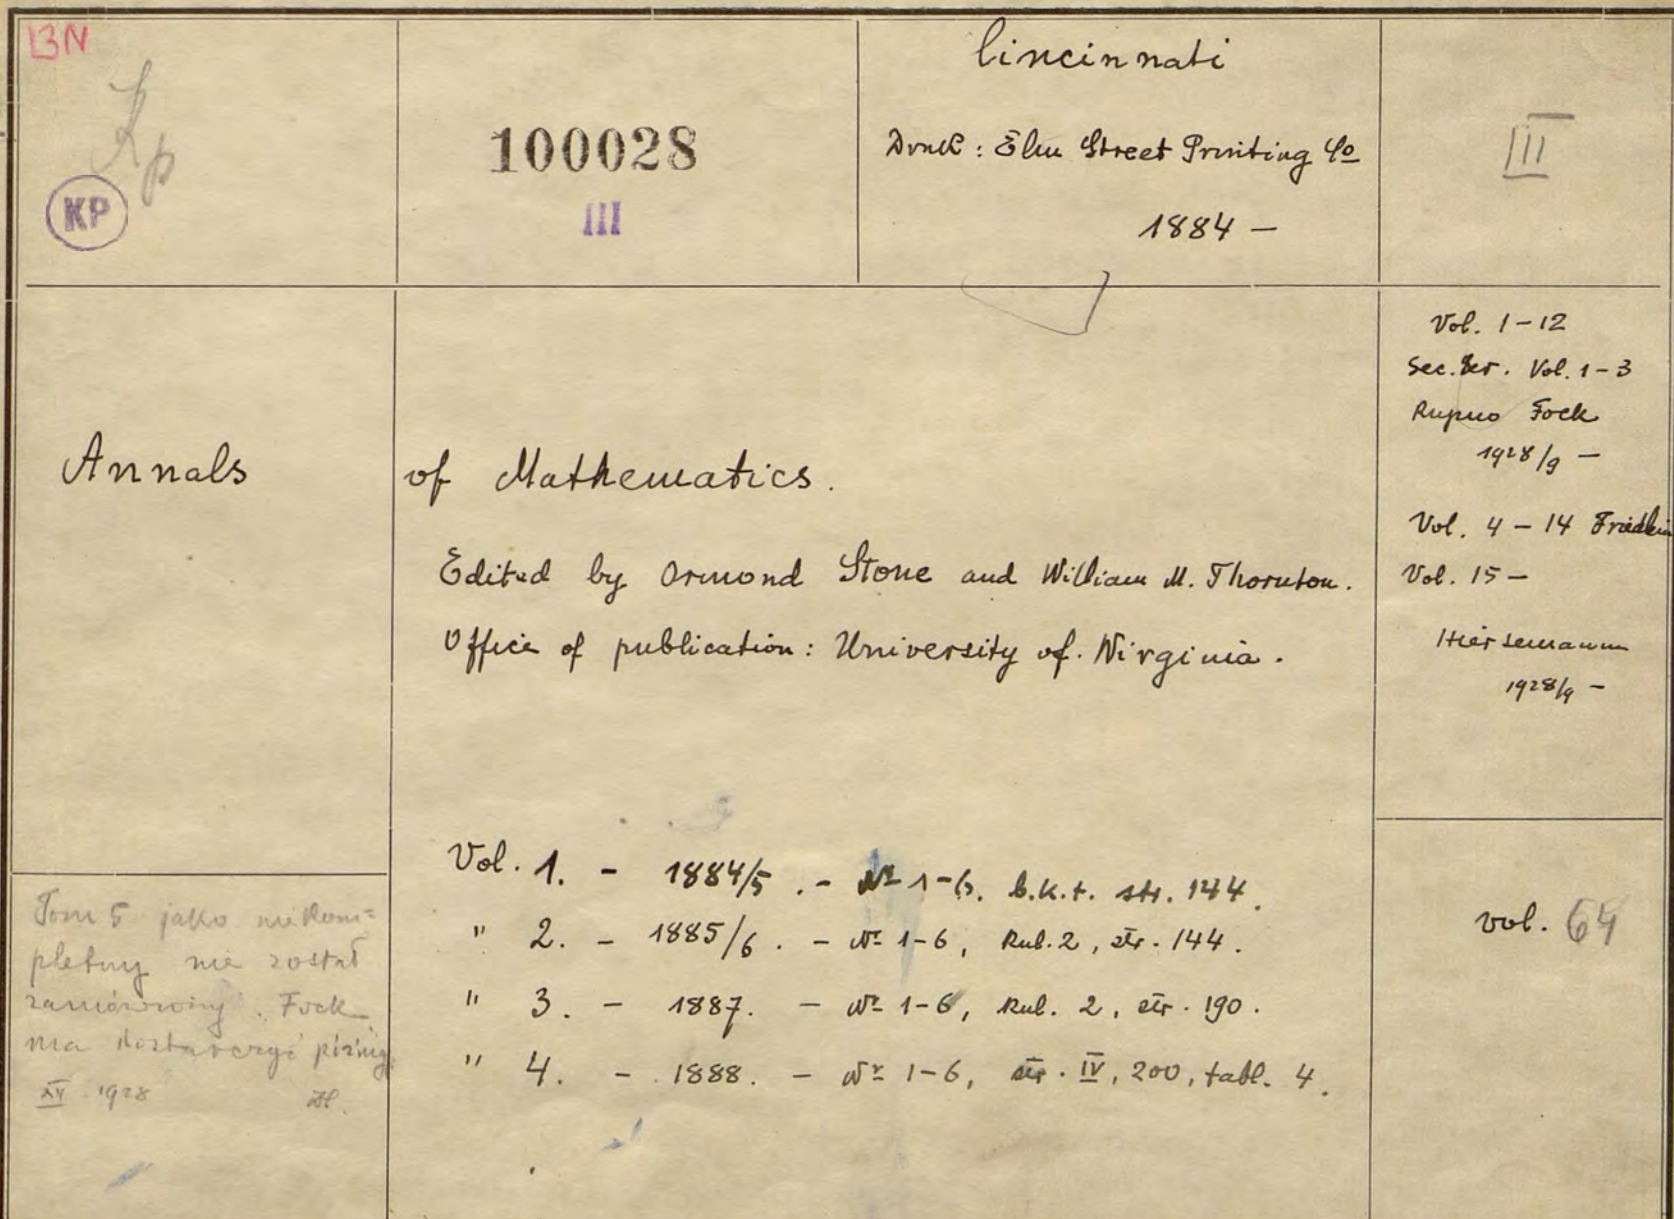 BN
Kp
KP
100028
III
Cincinnati
Druk: Elm Street Printing Co
1884 —
III
Annals of Mathematics.
Edited by Ormond Stone and William M. Thornton.
Office of publication: University of Virginia.
Vol. 1-12
Sec. Ser. Vol. 1-3
Kupno Fock
1928/9 —
Vol. 4 - 14 Friedlein
Vol. 15 —
Hiersemann
1928/9 —
Vol. 1. - 1884/5. - Nr 1-6. b.k.t. str. 144.
" 2. - 1885/6. - Nr 1-6, Rul. 2, str. 144.
" 3. - 1887. - Nr 1-6, Rul. 2, str. 190.
" 4. - 1888. - Nr 1-6, str. IV, 200, tabl. 4.
vol. 64
Tom 5 jako niekom=
pletny nie został
zamówiony. Fock
ma dostarczyć później
XV 1928